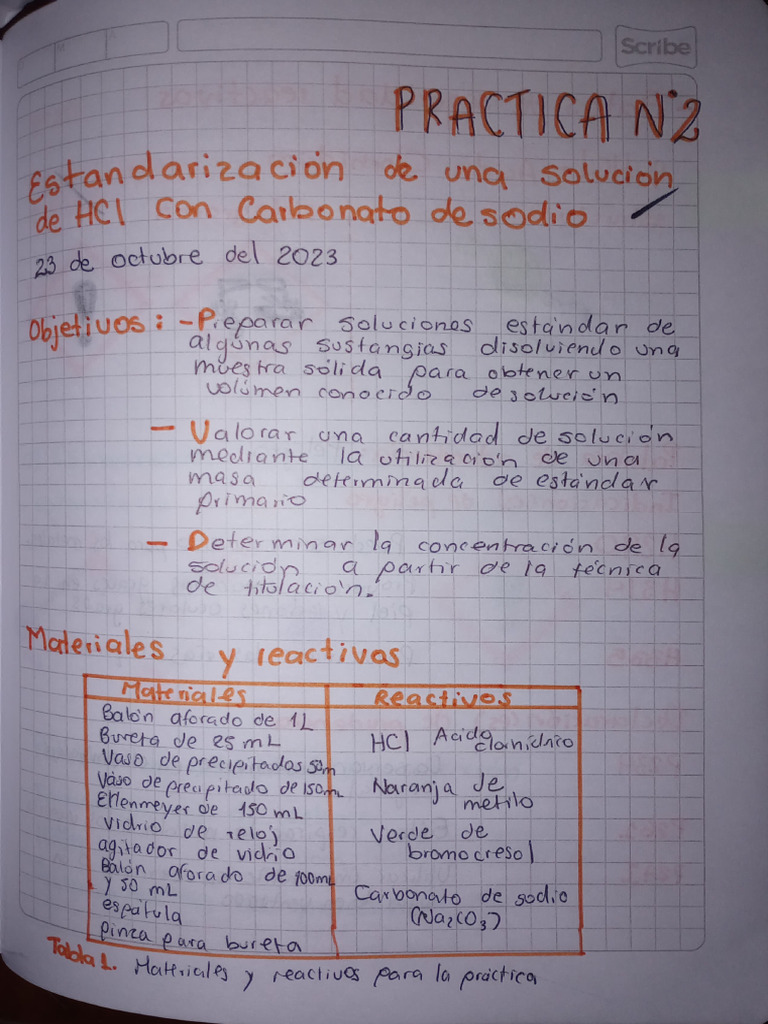 Scribe
PRACTICA N°2
Estandarización de una solución
de HCl con Carbonato de sodio
23 de octubre del 2023
Objetivos: - Preparar soluciones estándar de
algunas sustangias disolviendo una
muestra sólida para obtener un
volúmen conocido de solución
- Valorar una cantidad de solución
mediante la utilización de una
masa determinada de estándar
primario
- Determinar la concentración de la
solución a partir de la técnica
de titulación.
Materiales y reactivos
Materiales
Balón aforado de 1L
Bureta de 25 mL
Vaso de precipitados 50m
Vaso de precipitado de 150mL
Erlenmeyer de 150 mL
vidrio de reloj
agitador de vidrio
Balón aforado de 100mL
y 50 mL
espátula
pinza para bureta
Reactivos
HCl Acido
clorhídrico
Naranja de
metilo
Verde de
bromocresol
Carbonato de sodio
(Na₂CO₃)
Tabla 1. Materiales y reactivos para la práctica